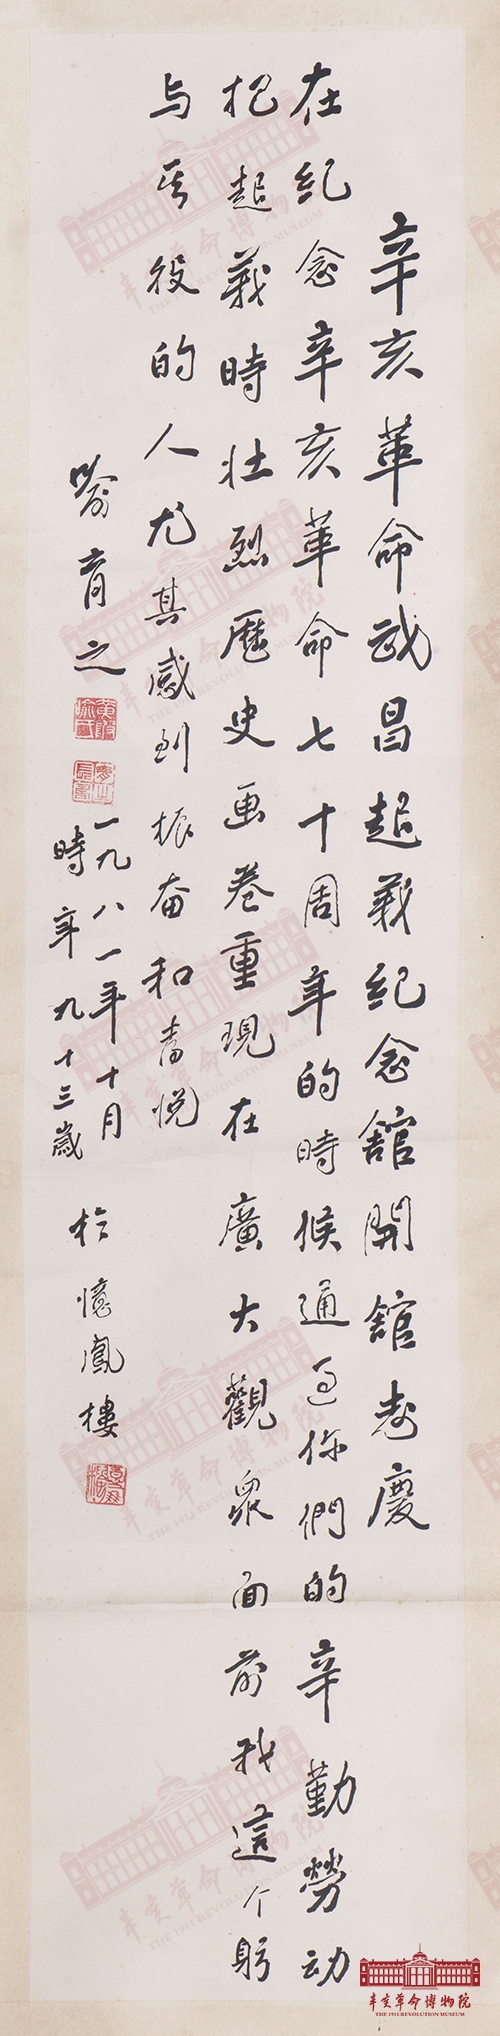 辛亥革命武昌起義紀念舘開舘志慶
在紀念辛亥革命七十周年的時候通过你們的辛勤勞动
把起義時壮烈歷史画卷重現在廣大觀眾面前我這个躬
与其役的人尤其感到振奋和喜悦
喻育之
一九八一年十月
時年九十三歲
於憶鳳樓
辛亥革命博物院
THE 1911 REVOLUTION MUSEUM